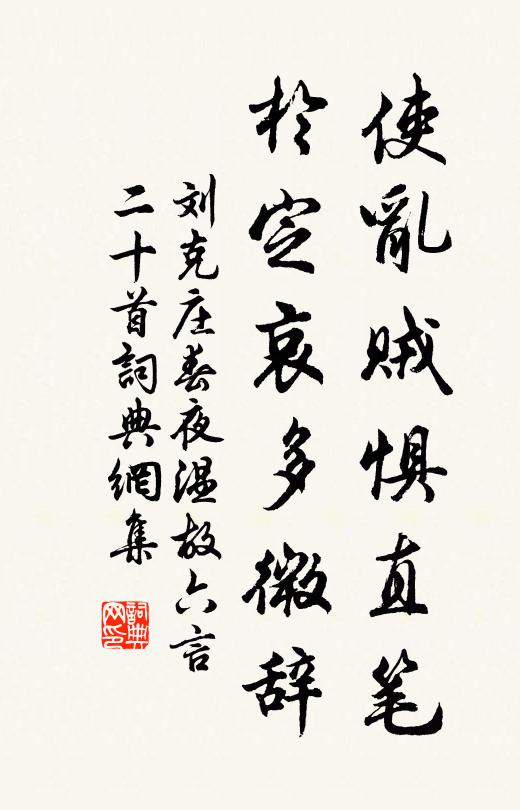 使亂贼惧直笔
於定哀多微辞
刘克庄春夜温故六言
二十首詞典網集
詞典
网印